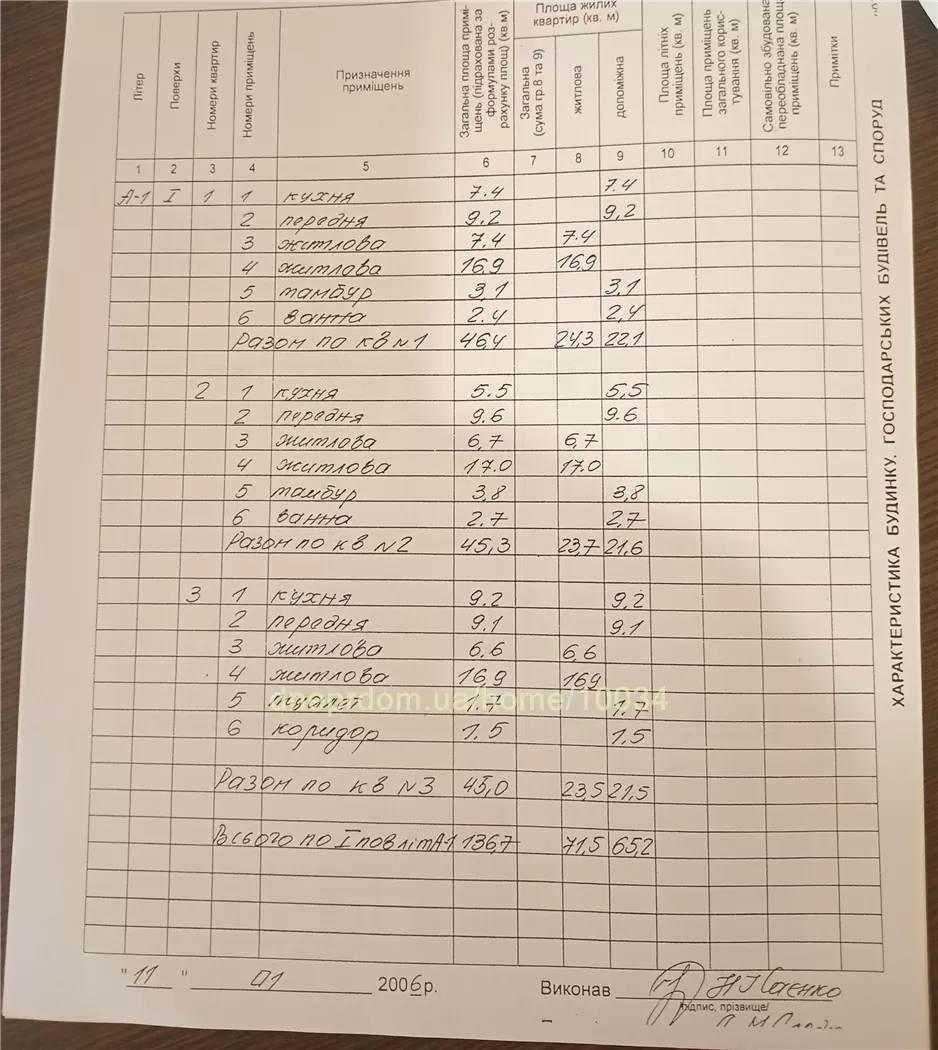 Літер
Поверхи
Номери квартир
Номери приміщень
Призначення приміщень
Загальна площа примі-
щень (підрахована за
формулами роз-
рахунку площ) (кв.м)
Площа жилих
квартир (кв. м)
Загальна
(сума гр.8 та 9)
житлова
допоміжна
Площа літніх
приміщень (кв. м)
Площа приміщень
загального корис-
тування (кв. м)
Самовільно збудована
переобладнана площа
приміщень (кв. м)
Примітки
1 2 3 4 5 6 7 8 9 10 11 12 13
А-1 I 1 1 кухня 7.4 7.4
2 передня 9.2 9,2
3 житлова 7.4 7.4
4 житлова 16,9 16,9
5 тамбур 3,1 3,1
6 ванна 2.4 2,4
Разом по кв №1 46,4 24,3 22,1
2 1 кухня 5.5 5,5
2 передня 9.6 9.6
3 житлова 6,7 6,7
4 житлова 17.0 17.0
5 тамбур 3,8 3,8
6 ванна 2.7 2,7
Разом по кв №2 45,3 23,7 21,6
3 1 кухня 9.2 9,2
2 передня 9.1 9.1
3 житлова 6,6 6,6
4 житлова 16,9 16,9
5 туалет 1.7 1,7
6 коридор 1.5 1,5
Разом по кв №3 45,0 23,5 21,5
Всього по I пов літ А-1 136,7 71,5 65,2
"11" 01 2006р.
Виконав
підпис, прізвище/
ХАРАКТЕРИСТИКА БУДИНКУ. ГОСПОДАРСЬКИХ БУДІВЕЛЬ ТА СПОРУД
dneprdom.ua/home/10034